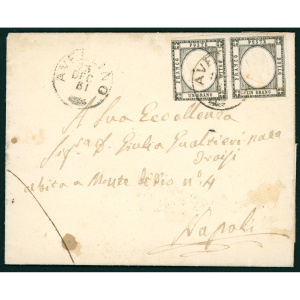 AVELLINO
DEC
61
POSTE
FRANCO
BOLLO
UN GRANO
POSTE
FRANCO
BOLLO
UN GRANO
AVE
A Sua Eccellenza
Sig.ra D. Giulia Gualtieri
abita a Monte di Dio n.° 4
Napoli